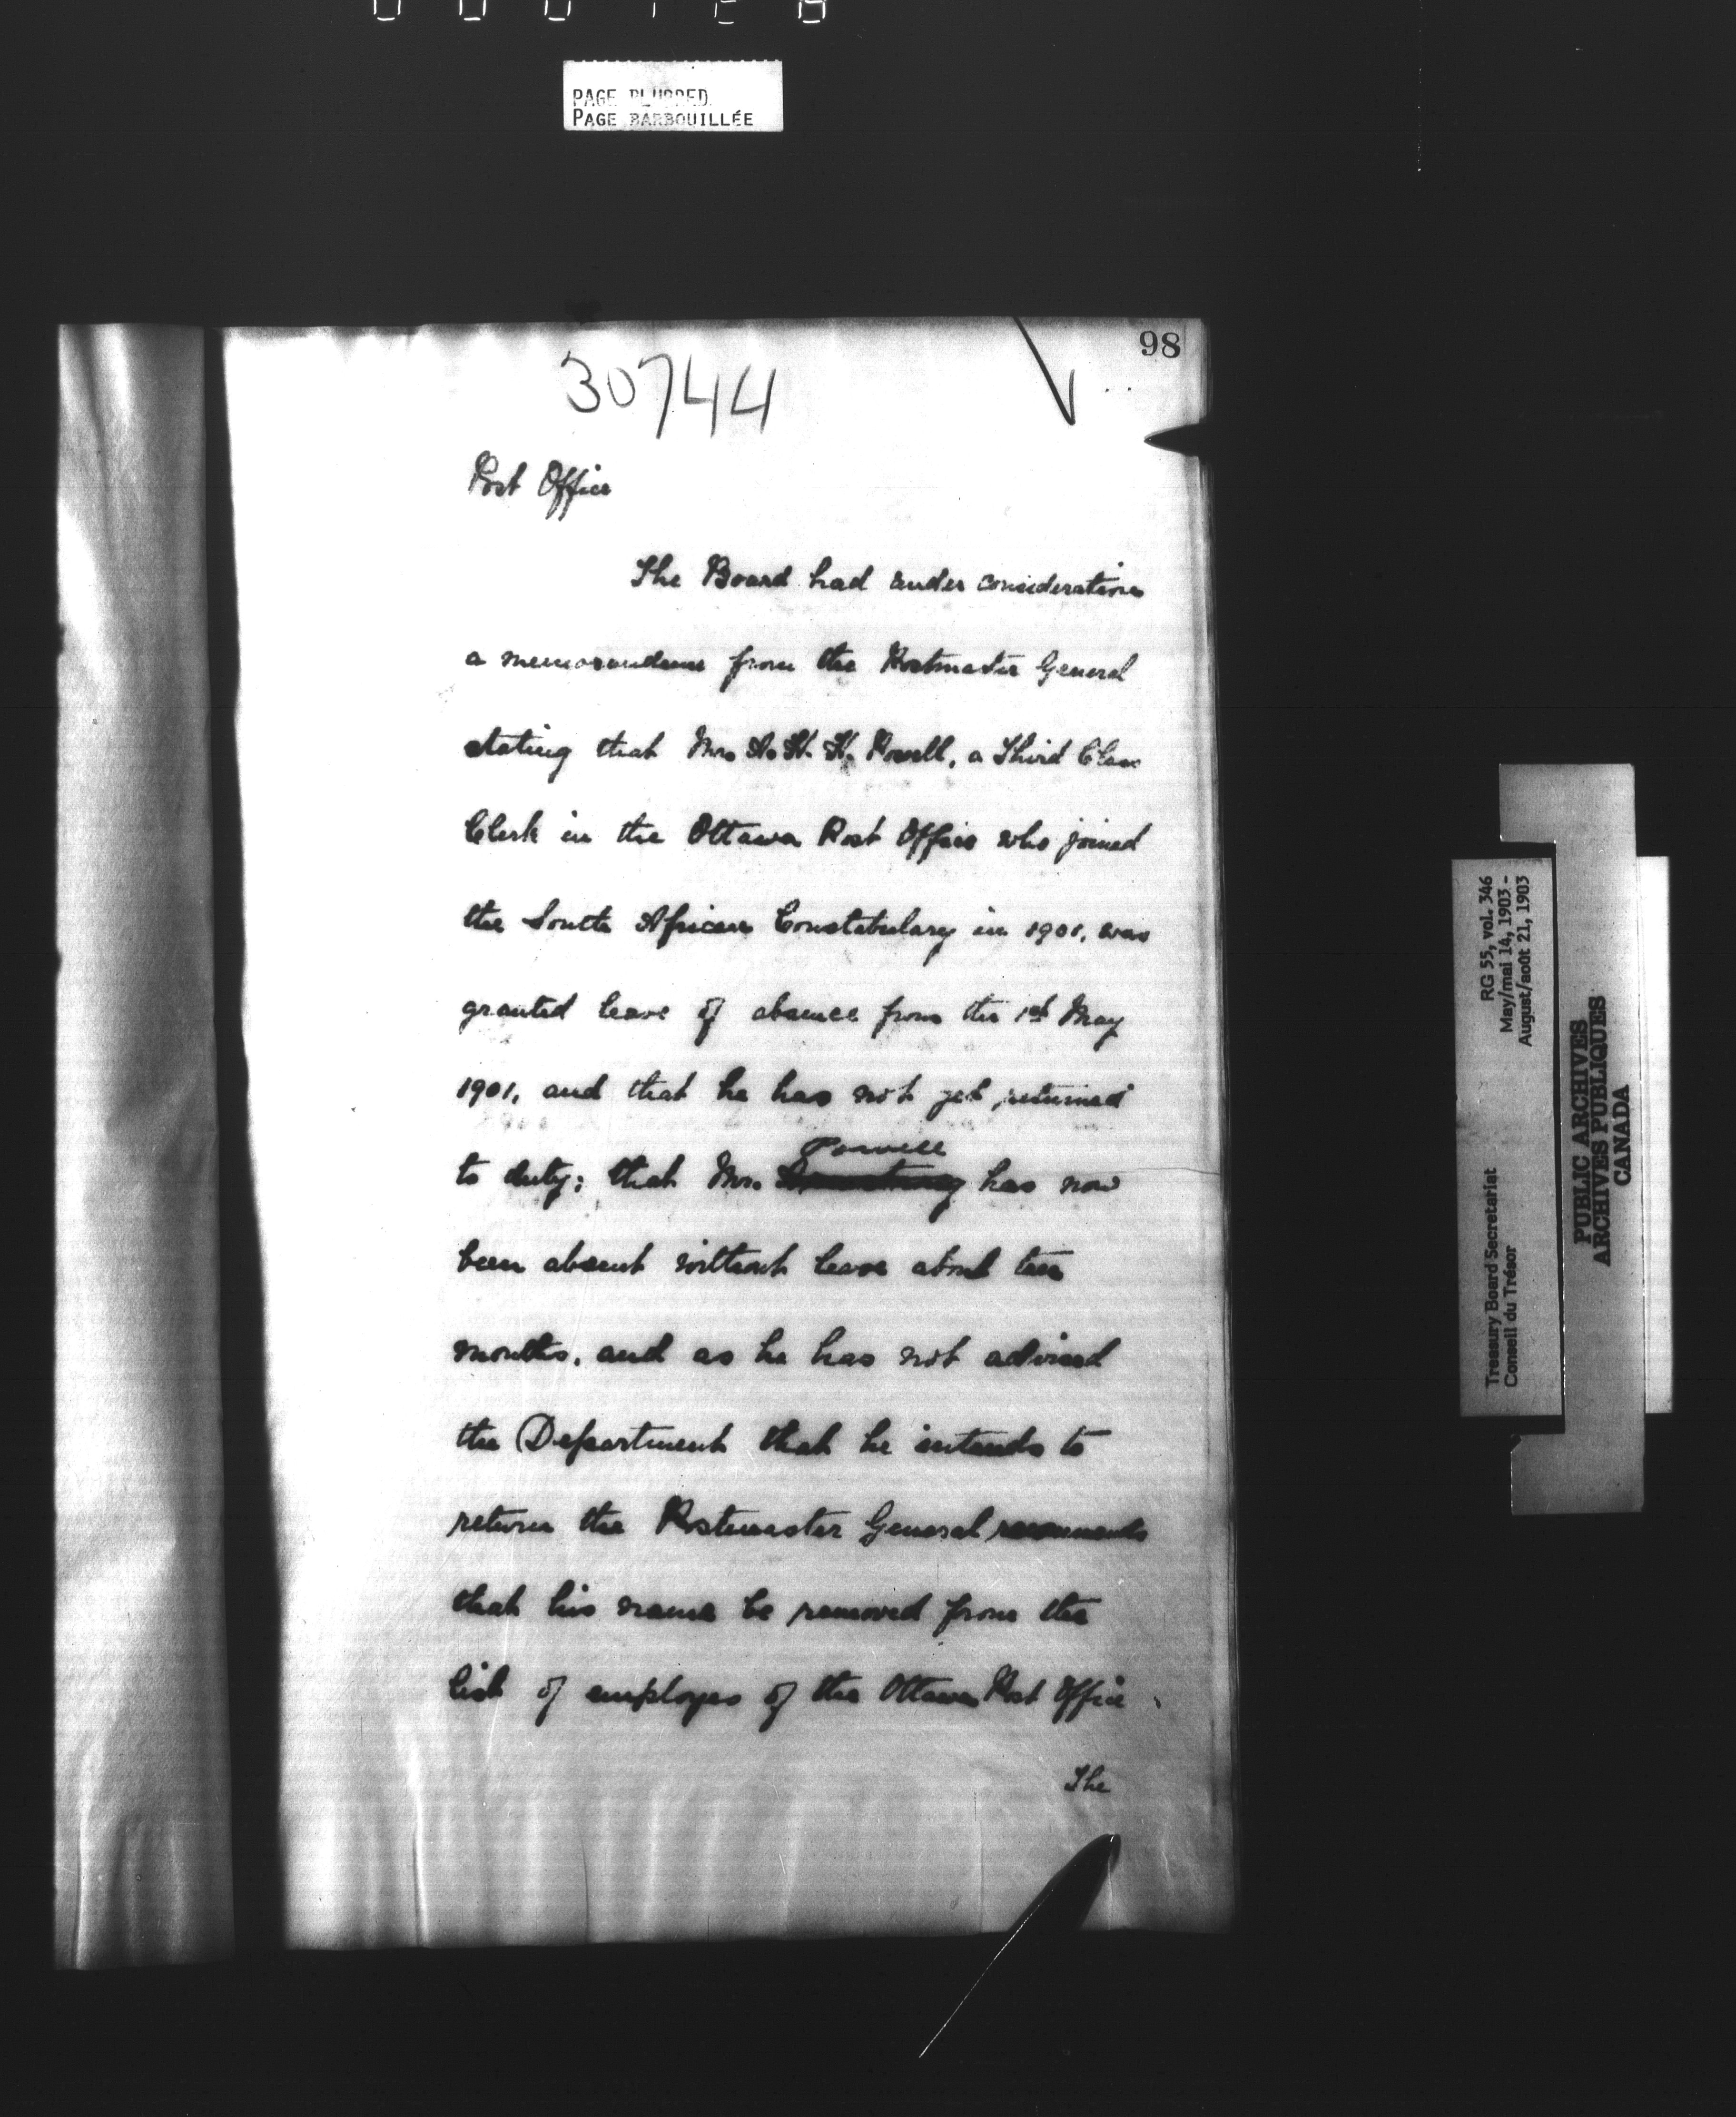 PAGE BLURRED
PAGE BARBOUILLÉE
98
30744
Post Office
The Board had under consideration
a memorandum from the Postmaster General
stating that Mr. A. H. H. Powell, a Third Class
Clerk in the Ottawa Post Office who joined
the South African Constabulary in 1901, was
granted leave of absence from the 1st May
1901, and that he has not yet returned
Powell
to duty; that Mr. has now
been absent without leave about ten
months, and as he has not advised
the Department that he intends to
return the Postmaster General recommends
that his name be removed from the
list of employes of the Ottawa Post Office.
The
RG 55, vol. 346
May/mai 14, 1903 -
August/août 21, 1903
Treasury Board Secretariat
Conseil du Trésor
PUBLIC ARCHIVES
ARCHIVES PUBLIQUES
CANADA